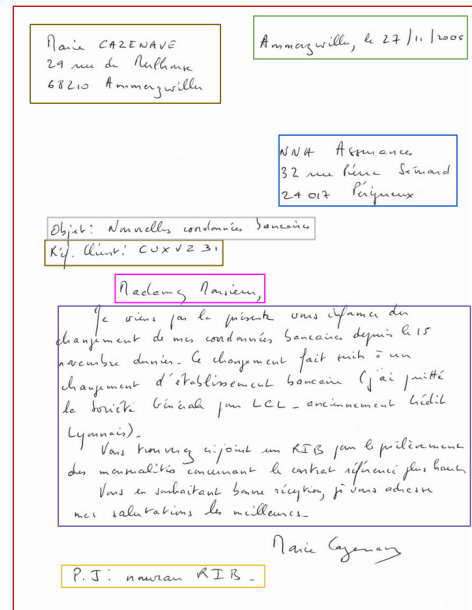 Marie CAZENAVE
29 rue de Mulhouse
68210 Ammerzwiller
Ammerzwiller, le 27/11/2006
NNA Assurances
32 rue Pierre Sémard
24017 Périgueux
Objet: Nouvelles coordonnées bancaires
Réf. Client: CUXVZ31
Madame, Monsieur,
Je viens par la présente vous informer du
changement de mes coordonnées bancaires depuis le 15
novembre dernier. Ce changement fait suite à un
changement d'établissement bancaire (j'ai quitté
la Société Générale pour LCL - anciennement Crédit
Lyonnais).
Vous trouverez ci-joint un RIB pour le prélèvement
des mensualités concernant le contrat référencé plus haut.
Vous en souhaitant bonne réception, je vous adresse
mes salutations les meilleures.
Marie Cazenave
P.J: nouveau RIB.